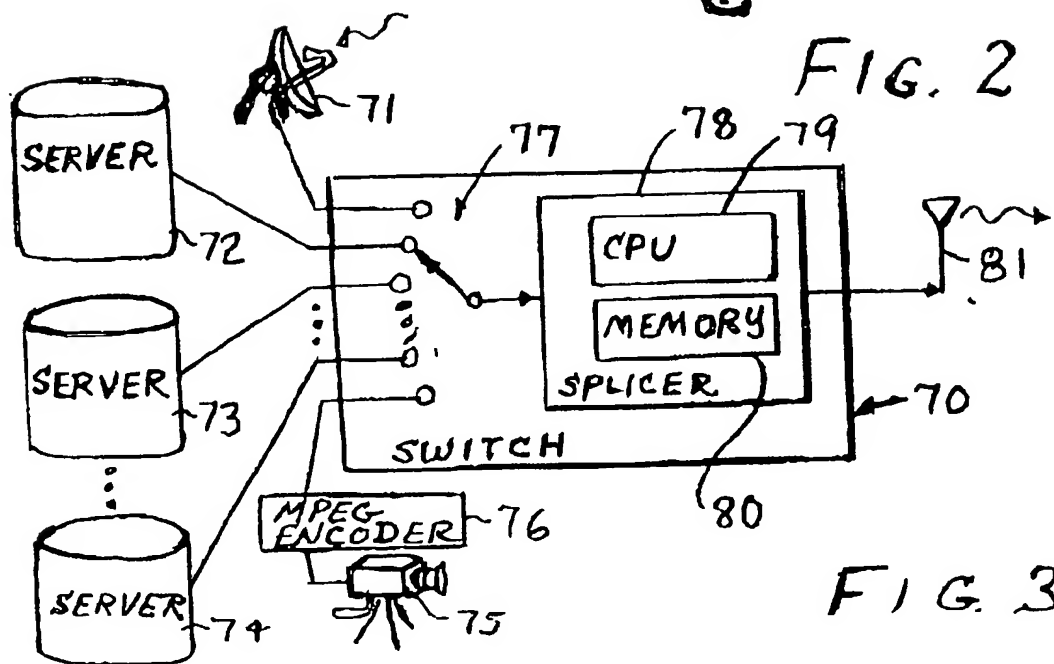 FIG. 2
71
SERVER
72
77
78
79
CPU
MEMORY
SPLICER
81
SERVER
73
SWITCH
70
80
MPEG
ENCODER
76
75
SERVER
74
FIG. 3